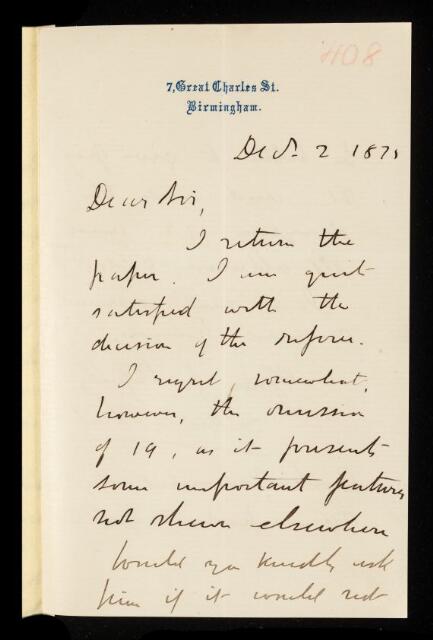 408
7, Great Charles St.
Birmingham.
Decr. 2 1875
Dear Sir,
I return the
paper. I am quite
satisfied with the
decision of the referee.
I regret, somewhat,
however, the omission
of 19, as it presents
some important features
not shewn elsewhere
Would you kindly ask
him if it would not